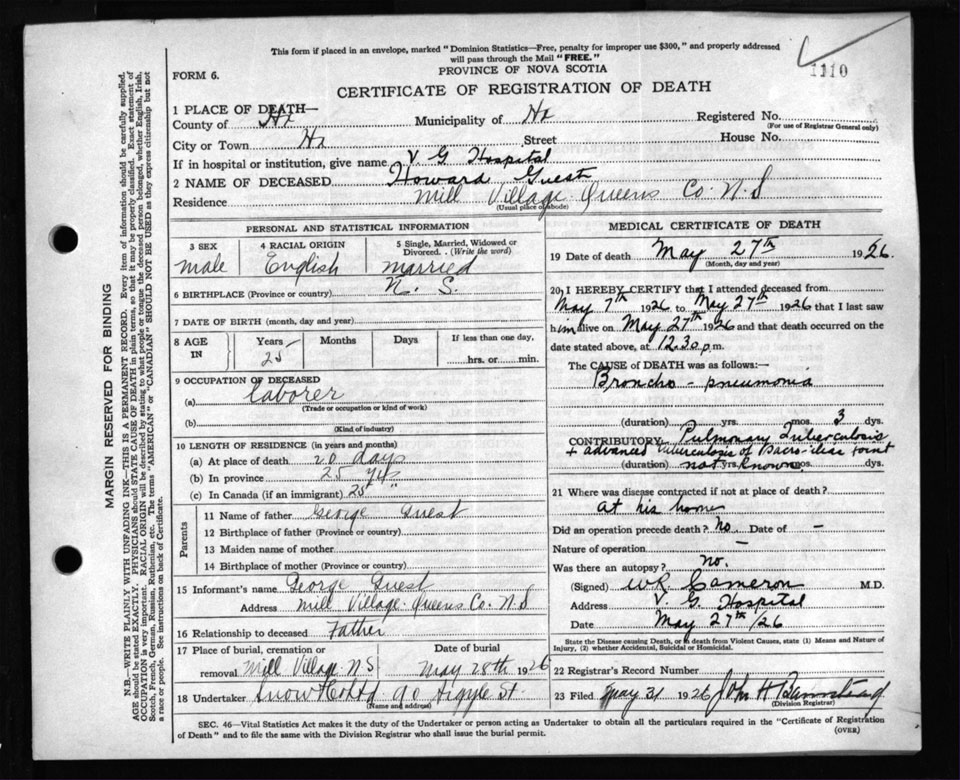 This form if placed in an envelope, marked "Dominion Statistics—Free, penalty for improper use $300," and properly addressed
will pass through the Mail "FREE."
1110
FORM 6.
PROVINCE OF NOVA SCOTIA
CERTIFICATE OF REGISTRATION OF DEATH
1 PLACE OF DEATH—
County of Hx Municipality of Hx Registered No.
(For use of Registrar General only)
City or Town Hx Street House No.
If in hospital or institution, give name V G Hospital
2 NAME OF DECEASED Howard Guest
Residence Mill Village Queens Co. N.S
(Usual place of abode)
PERSONAL AND STATISTICAL INFORMATION
3 SEX 4 RACIAL ORIGIN 5 Single, Married, Widowed or
Divorced. . (Write the word)
male English married
6 BIRTHPLACE (Province or country) N. S.
7 DATE OF BIRTH (month, day and year)
8 AGE IN Years Months Days If less than one day,
25 hrs. or min.
9 OCCUPATION OF DECEASED
(a) laborer
(Trade or occupation or kind of work)
(b)
(Kind of industry)
10 LENGTH OF RESIDENCE (in years and months)
(a) At place of death 20 days
(b) In province 25 yrs
(c) In Canada (if an immigrant) 25 "
Parents
11 Name of father George Guest
12 Birthplace of father (Province or country)
13 Maiden name of mother
14 Birthplace of mother (Province or country)
15 Informant's name George Guest
Address Mill Village Queens Co. N.S
16 Relationship to deceased Father
17 Place of burial, cremation or Date of burial
removal Mill Village N S May 28th 1926
18 Undertaker Snow & Co Ltd 90 Argyle St.
(Name and address)
MEDICAL CERTIFICATE OF DEATH
19 Date of death May 27th 1926.
(Month, day and year)
20 I HEREBY CERTIFY that I attended deceased from
May 7th 1926 to May 27th 1926 that I last saw
him alive on May 27th 1926 and that death occurred on the
date stated above, at 12.30 p.m.
The CAUSE OF DEATH was as follows:—
Broncho-pneumonia
(duration) yrs. mos. 3 dys.
CONTRIBUTORY Pulmonary Tuberculosis
+ advanced Tuberculosis of Sacro-iliac joint
(duration) not yrs. known mos. dys.
21 Where was disease contracted if not at place of death?
At his home
Did an operation precede death? no. Date of –
Nature of operation –
Was there an autopsy? no.
(Signed) W R Cameron M.D.
Address V. G. Hospital
Date May 27th/26
State the Disease causing Death, or in death from Violent Causes, state (1) Means and Nature of
Injury, (2) whether Accidental, Suicidal or Homicidal.
22 Registrar's Record Number
23 Filed May 31 1926 John H Barnstead
(Division Registrar)
SEC. 46—Vital Statistics Act makes it the duty of the Undertaker or person acting as Undertaker to obtain all the particulars required in the "Certificate of Registration
of Death" and to file the same with the Division Registrar who shall issue the burial permit.
(OVER)
MARGIN RESERVED FOR BINDING
N.B.—WRITE PLAINLY WITH UNFADING INK—THIS IS A PERMANENT RECORD. Every item of information should be carefully supplied.
AGE should be stated EXACTLY. PHYSICIANS should STATE CAUSE OF DEATH in plain terms, so that it may be properly classified. Exact statement of
OCCUPATION is very important. RACIAL ORIGIN will be described by stating to what people or tongue the deceased person belonged, whether English, Irish,
Scotch, French, German, Russian, Ruthenian, etc. The terms "AMERICAN" or "CANADIAN" SHOULD NOT BE USED as they express citizenship but not
a race or people. See instructions on back of Certificate.